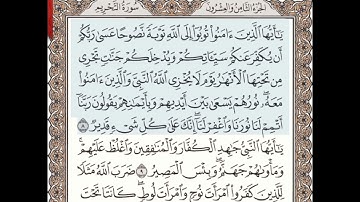 الجزء الثامن والعشرون سورة التحريم
يَٰٓأَيُّهَا ٱلَّذِينَ ءَامَنُوا۟ تُوبُوٓا۟ إِلَى ٱللَّهِ تَوْبَةً نَّصُوحًا عَسَىٰ رَبُّكُمْ
أَن يُكَفِّرَ عَنكُمْ سَيِّـَٔاتِكُمْ وَيُدْخِلَكُمْ جَنَّٰتٍ تَجْرِى
مِن تَحْتِهَا ٱلْأَنْهَٰرُ يَوْمَ لَا يُخْزِى ٱللَّهُ ٱلنَّبِىَّ وَٱلَّذِينَ ءَامَنُوا۟
مَعَهُۥ نُورُهُمْ يَسْعَىٰ بَيْنَ أَيْدِيهِمْ وَبِأَيْمَٰنِهِمْ يَقُولُونَ رَبَّنَآ
أَتْمِمْ لَنَا نُورَنَا وَٱغْفِرْ لَنَآ إِنَّكَ عَلَىٰ كُلِّ شَىْءٍ قَدِيرٌ ٨
يَٰٓأَيُّهَا ٱلنَّبِىُّ جَٰهِدِ ٱلْكُفَّارَ وَٱلْمُنَٰفِقِينَ وَٱغْلُظْ عَلَيْهِمْ
وَمَأْوَىٰهُمْ جَهَنَّمُ وَبِئْسَ ٱلْمَصِيرُ ٩ ضَرَبَ ٱللَّهُ مَثَلًا
لِّلَّذِينَ كَفَرُوا۟ ٱمْرَأَتَ نُوحٍ وَٱمْرَأَتَ لُوطٍ كَانَتَا تَحْتَ